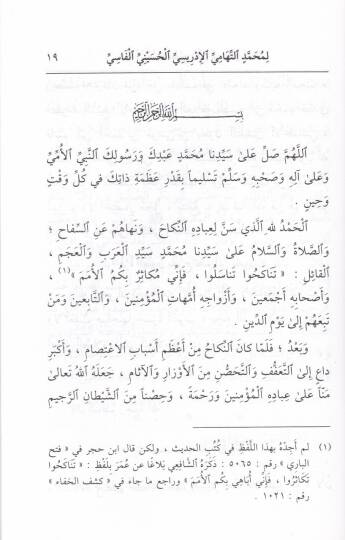 لِمُحَمَّدٍ التِّهَامِيِّ الْإِدْرِيسِيِّ الْحُسَيْنِيِّ الْفَاسِيِّ ١٩
بسم الله الرحمن الرحيم
اللَّهُمَّ صَلِّ عَلىٰ سَيِّدِنا مُحَمَّدٍ عَبْدِكَ وَرَسُولِكَ النَّبِيِّ الْأُمِّيِّ
وَعَلىٰ آلِهِ وَصَحْبِهِ وَسَلِّمْ تَسْلِيماً بِقَدْرِ عَظَمَةِ ذاتِكَ في كُلِّ وَقْتٍ
وَحِينٍ .
الْحَمْدُ للهِ الَّذي سَنَّ لِعِبادِهِ النِّكاحَ ، وَنَهاهُمْ عَنِ السِّفاحِ ؛
وَالصَّلاةُ وَالسَّلامُ عَلىٰ سَيِّدِنا مُحَمَّدٍ سَيِّدِ الْعَرَبِ وَالْعَجَمِ ،
الْقائِلِ : « تَناكَحُوا تَناسَلُوا ، فَإِنِّي مُكاثِرٌ بِكُمُ الْأُمَمَ »(١) ،
وَأَصْحابِهِ أَجْمَعِينَ ، وَأَزْواجِهِ أُمَّهاتِ الْمُؤْمِنِينَ ، وَالتَّابِعينَ وَمَنْ
تَبِعَهُمْ إِلىٰ يَوْمِ الدِّينِ .
وَبَعْدُ ؛ فَلَمَّا كانَ النِّكاحُ مِنْ أَعْظَمِ أَسْبابِ الاعْتِصامِ ، وَأَكْبَرِ
داعٍ إِلىٰ التَّعَفُّفِ وَالتَّحَصُّنِ مِنَ الأَوْزارِ وَالآثامِ ، جَعَلَهُ اللهُ تَعالىٰ
مَنّاً عَلىٰ عِبادِهِ الْمُؤْمِنينَ وَرَحْمَةً ، وَحِصْناً مِنَ الشَّيْطانِ الرَّجيمِ
(١) لم أَجِدْهُ بهذا اللَّفْظِ في كُتُبِ الحديث ، ولكن قال ابن حجر في « فتح
الباري » رقم : ٥٠٦٥ : ذَكَرَهُ الشَّافِعي بَلاغاً عن عُمَرَ بِلَفْظِ : « تَناكَحُوا
تَكاثَرُوا ، فَإِنِّي أُباهي بِكُم الأُمَمَ » وراجع ما جاء في « كشف الخفاء »
رقم : ١٠٢١ .